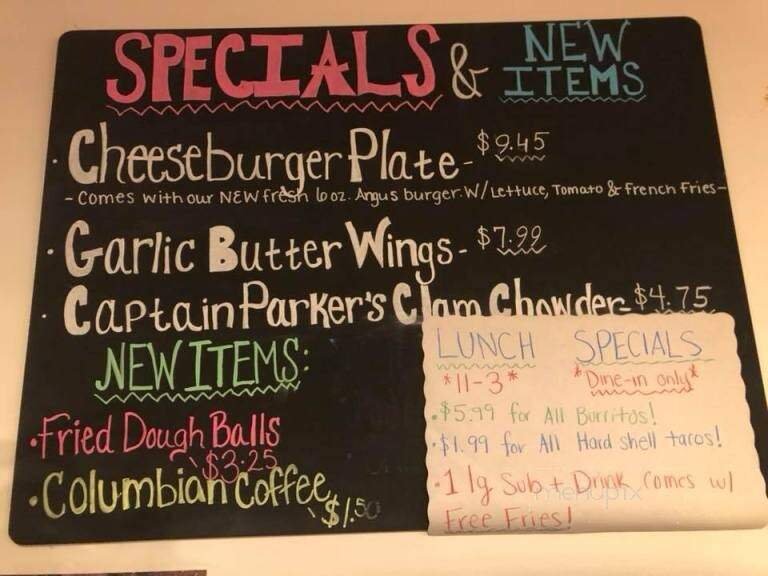 SPECIALS & NEW ITEMS
· Cheeseburger Plate - $9.45
- Comes with our NEW fresh 6 oz. Angus burger. W/ Lettuce, Tomato & french fries -
· Garlic Butter Wings - $7.99
· Captain Parker's Clam Chowder - $4.75
NEW ITEMS:
· Fried Dough Balls
\$3.25
· Columbian Coffee
\$1.50
LUNCH SPECIALS
*11-3* *Dine-in only*
· $5.99 for All Burritos!
· $1.99 for All Hard shell tacos!
· 1 lg Sub + Drink comes w/
Free Fries!
menupix